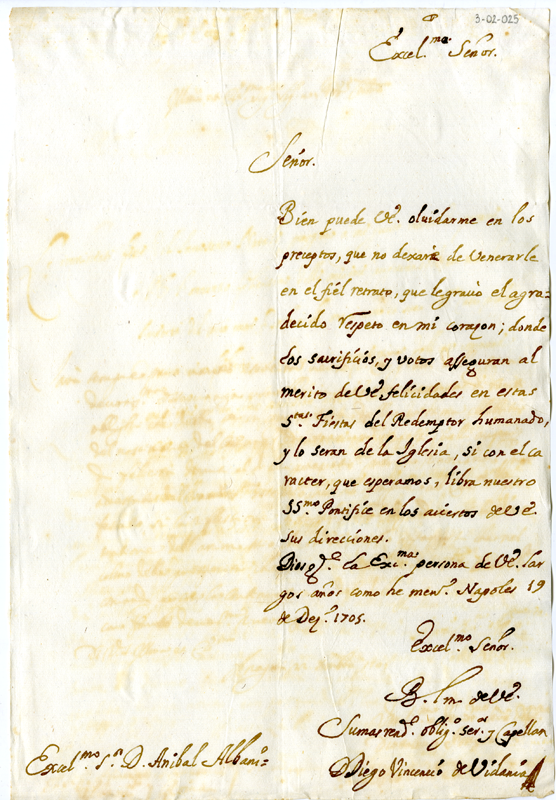 3-02-025
Excel.mo Señor.
Señor.
Bien puede Ve. oluidarme en los
preceptos, que no dexarà de Venerarle
en el fiel retrato, que le grauò el agra-
decido respeto en mi corazon; donde
los sacrificios, y votos asseguran al
merito de Ve felicidades en estas
Stas. Fiestas del Redemptor humanado,
y lo seran de la Iglesia, si con el ca
racter, que esperamos, libra nuestro
SSmo Pontifice en los aciertos de Ve.
sus direcciones.
Dios gde. la Excma. persona de Ve. lar
gos años como he menr. Napoles 19
de Dezre. 1705.
Excelmo. Señor.
B. l m. de Ve.
Su mas rendo. obligo. seror. y Capellan
D Diego Vincencio de Vidania
Excelmo. Sr. D. Anibal Albani=